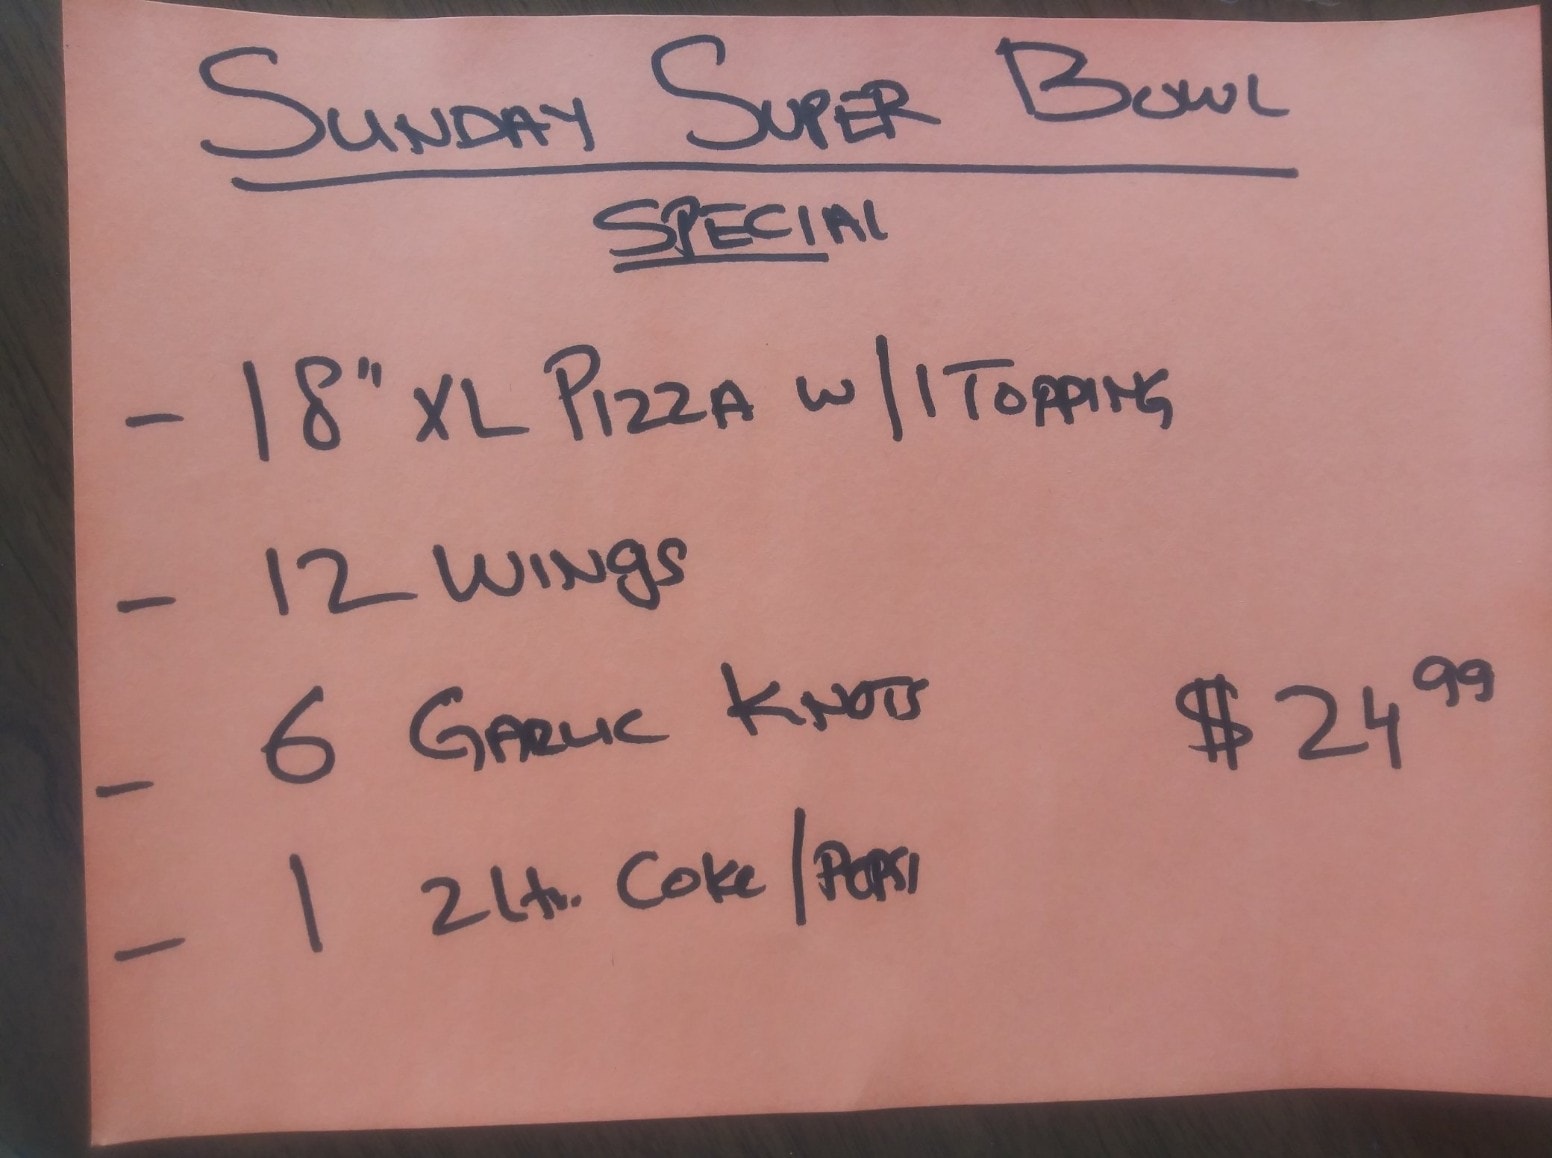 SUNDAY SUPER BOWL
SPECIAL
- 18" XL PIZZA W/1 TOPPING
- 12 WINGS
- 6 GARLIC KNOTS $24.99
- 1 2 Ltr. Coke/PEPSI